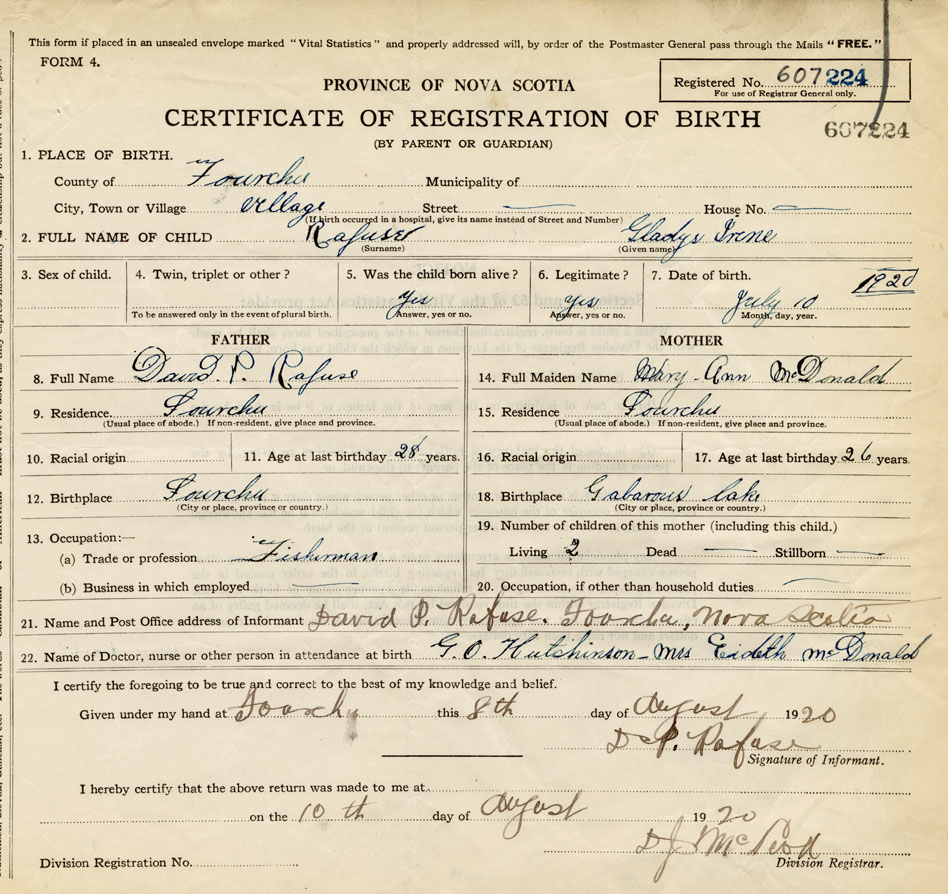 This form if placed in an unsealed envelope marked "Vital Statistics" and properly addressed will, by order of the Postmaster General pass through the Mails "FREE."
FORM 4.
PROVINCE OF NOVA SCOTIA
Registered No. 607224
For use of Registrar General only.
CERTIFICATE OF REGISTRATION OF BIRTH
607224
(BY PARENT OR GUARDIAN)
1. PLACE OF BIRTH.
County of Fourchu Municipality of
City, Town or Village Village Street — House No. —
(If birth occurred in a hospital, give its name instead of Street and Number)
2. FULL NAME OF CHILD Rafuse Gladys Irene
(Surname) (Given name)
3. Sex of child. 4. Twin, triplet or other? 5. Was the child born alive? 6. Legitimate? 7. Date of birth. 1920
Yes Yes July 10
To be answered only in the event of plural birth. Answer, yes or no. Answer, yes or no. Month, day, year.
FATHER MOTHER
8. Full Name David. P. Rafuse 14. Full Maiden Name Mary-Ann McDonald
9. Residence. Fourchu 15. Residence. Fourchu
(Usual place of abode.) If non-resident, give place and province. (Usual place of abode.) If non-resident, give place and province.
10. Racial origin 11. Age at last birthday 28 years. 16. Racial origin 17. Age at last birthday 26 years.
12. Birthplace Fourchu 18. Birthplace Gabarous Lake
(City or place, province or country.) (City or place, province or country.)
13. Occupation:— 19. Number of children of this mother (including this child.)
(a) Trade or profession Fisherman Living 2 Dead — Stillborn —
(b) Business in which employed — 20. Occupation, if other than household duties —
21. Name and Post Office address of Informant David P. Rafuse. Fourchu, Nova Scotia
22. Name of Doctor, nurse or other person in attendance at birth G. O. Hutchinson - Mrs McDonald
I certify the foregoing to be true and correct to the best of my knowledge and belief.
Given under my hand at Fourchu this 8th day of August 1920
D. P. Rafuse
Signature of Informant.
I hereby certify that the above return was made to me at
on the 10th day of August 1920
D J McLeod
Division Registration No. Division Registrar.